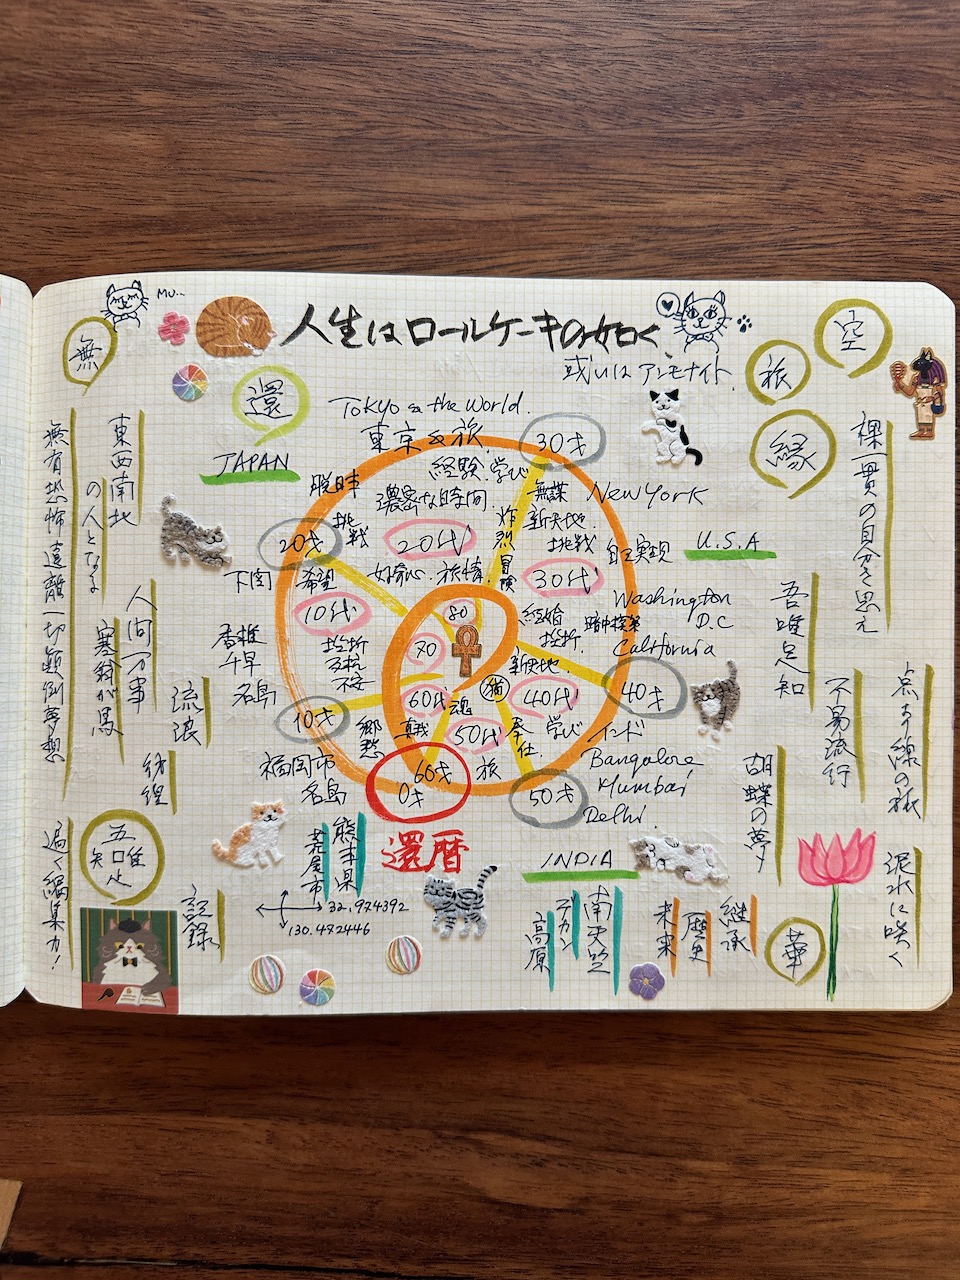 MU...
人生はロールケーキの如く、
或いはアンモナイト。
無
還
空
旅
縁
JAPAN
Tokyo & the World.
東京&旅
経験.学び
濃密な時間
脱日本
挑戦
20才
20代
好奇心.旅情.
炸烈
冒険
30才
無謀
新天地.
挑戦
New York
自己実現
U.S.A
30代
経験
挫折
暗中模索
Washington
D.C
California
新天地.
40才
40代
学び
奉仕
インド
Bangalore
Mumbai
Delhi.
50才
50代
旅
魂
猫
下関
希望
10代
挫折
不安
香椎
千早
名島
10才
郷愁
福岡市
名島
真我
60代
70
80
60才
0才
還暦
熊本県
荒尾市
32.974392
130.472446
INDIA
南天竺
デカン
高原
継承
歴史
未来
華
裸一貫の自分を思え
吾唯足知
点なり線の旅
不易流行
胡蝶の夢
泥水に咲く
東西南北
の人となる
無有恐怖遠離一切顛倒夢想
人間万事
塞翁が馬
流浪
彷徨
吾唯足知
遍く編集力!
記録